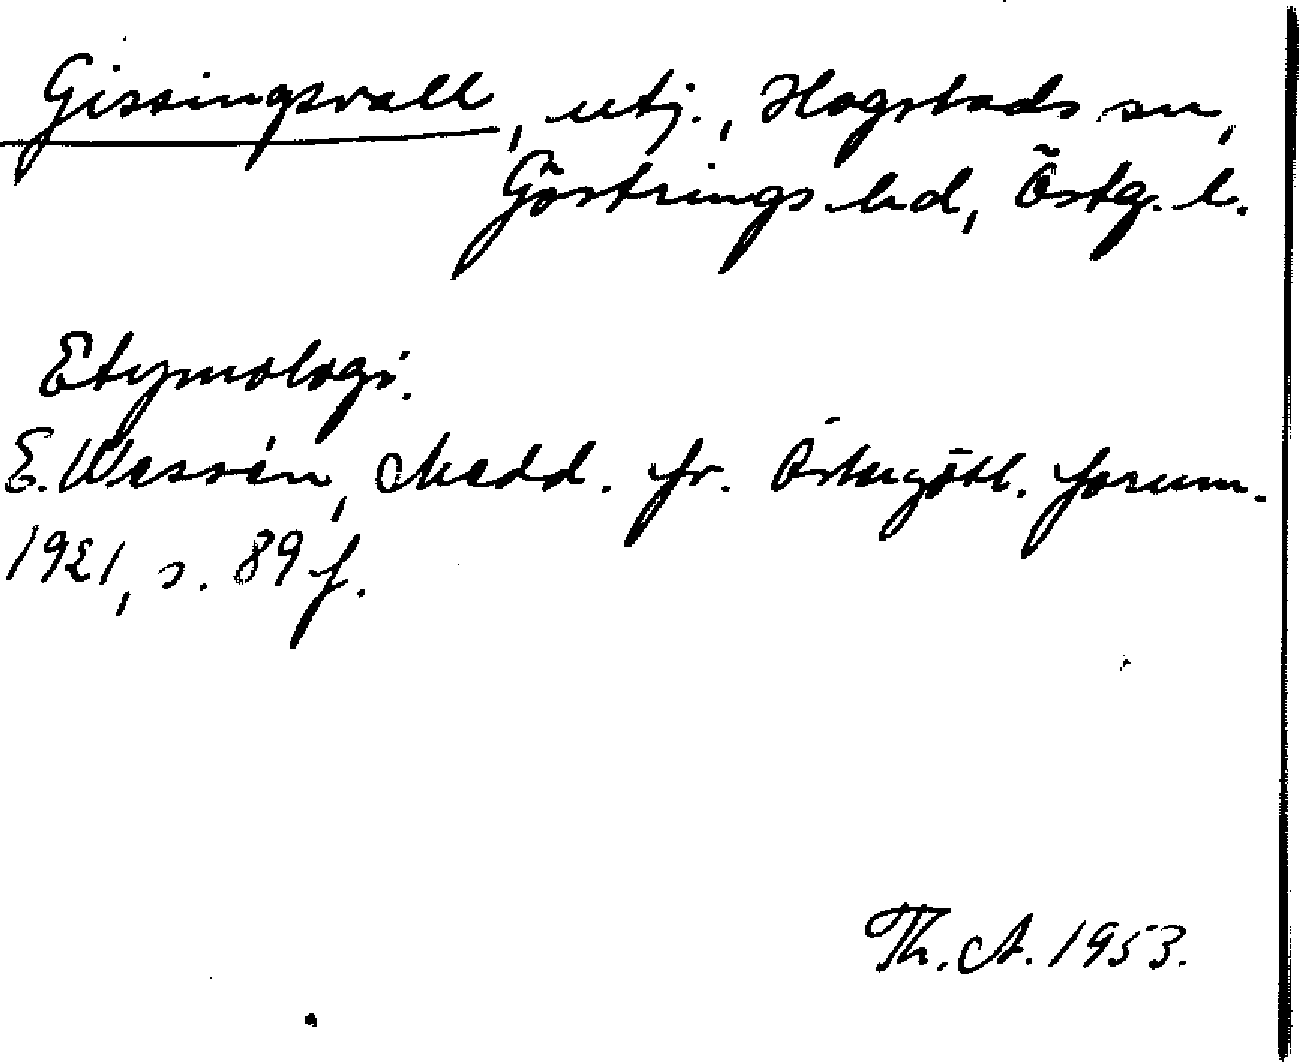 Gissingsvall, utj., Hogstads sn,
Göstrings hd, Östg. l.
Etymologi.
E. Wessén, Medd. fr. Östergötl. fornm.
1921, s. 89 f.
Th. A. 1953.